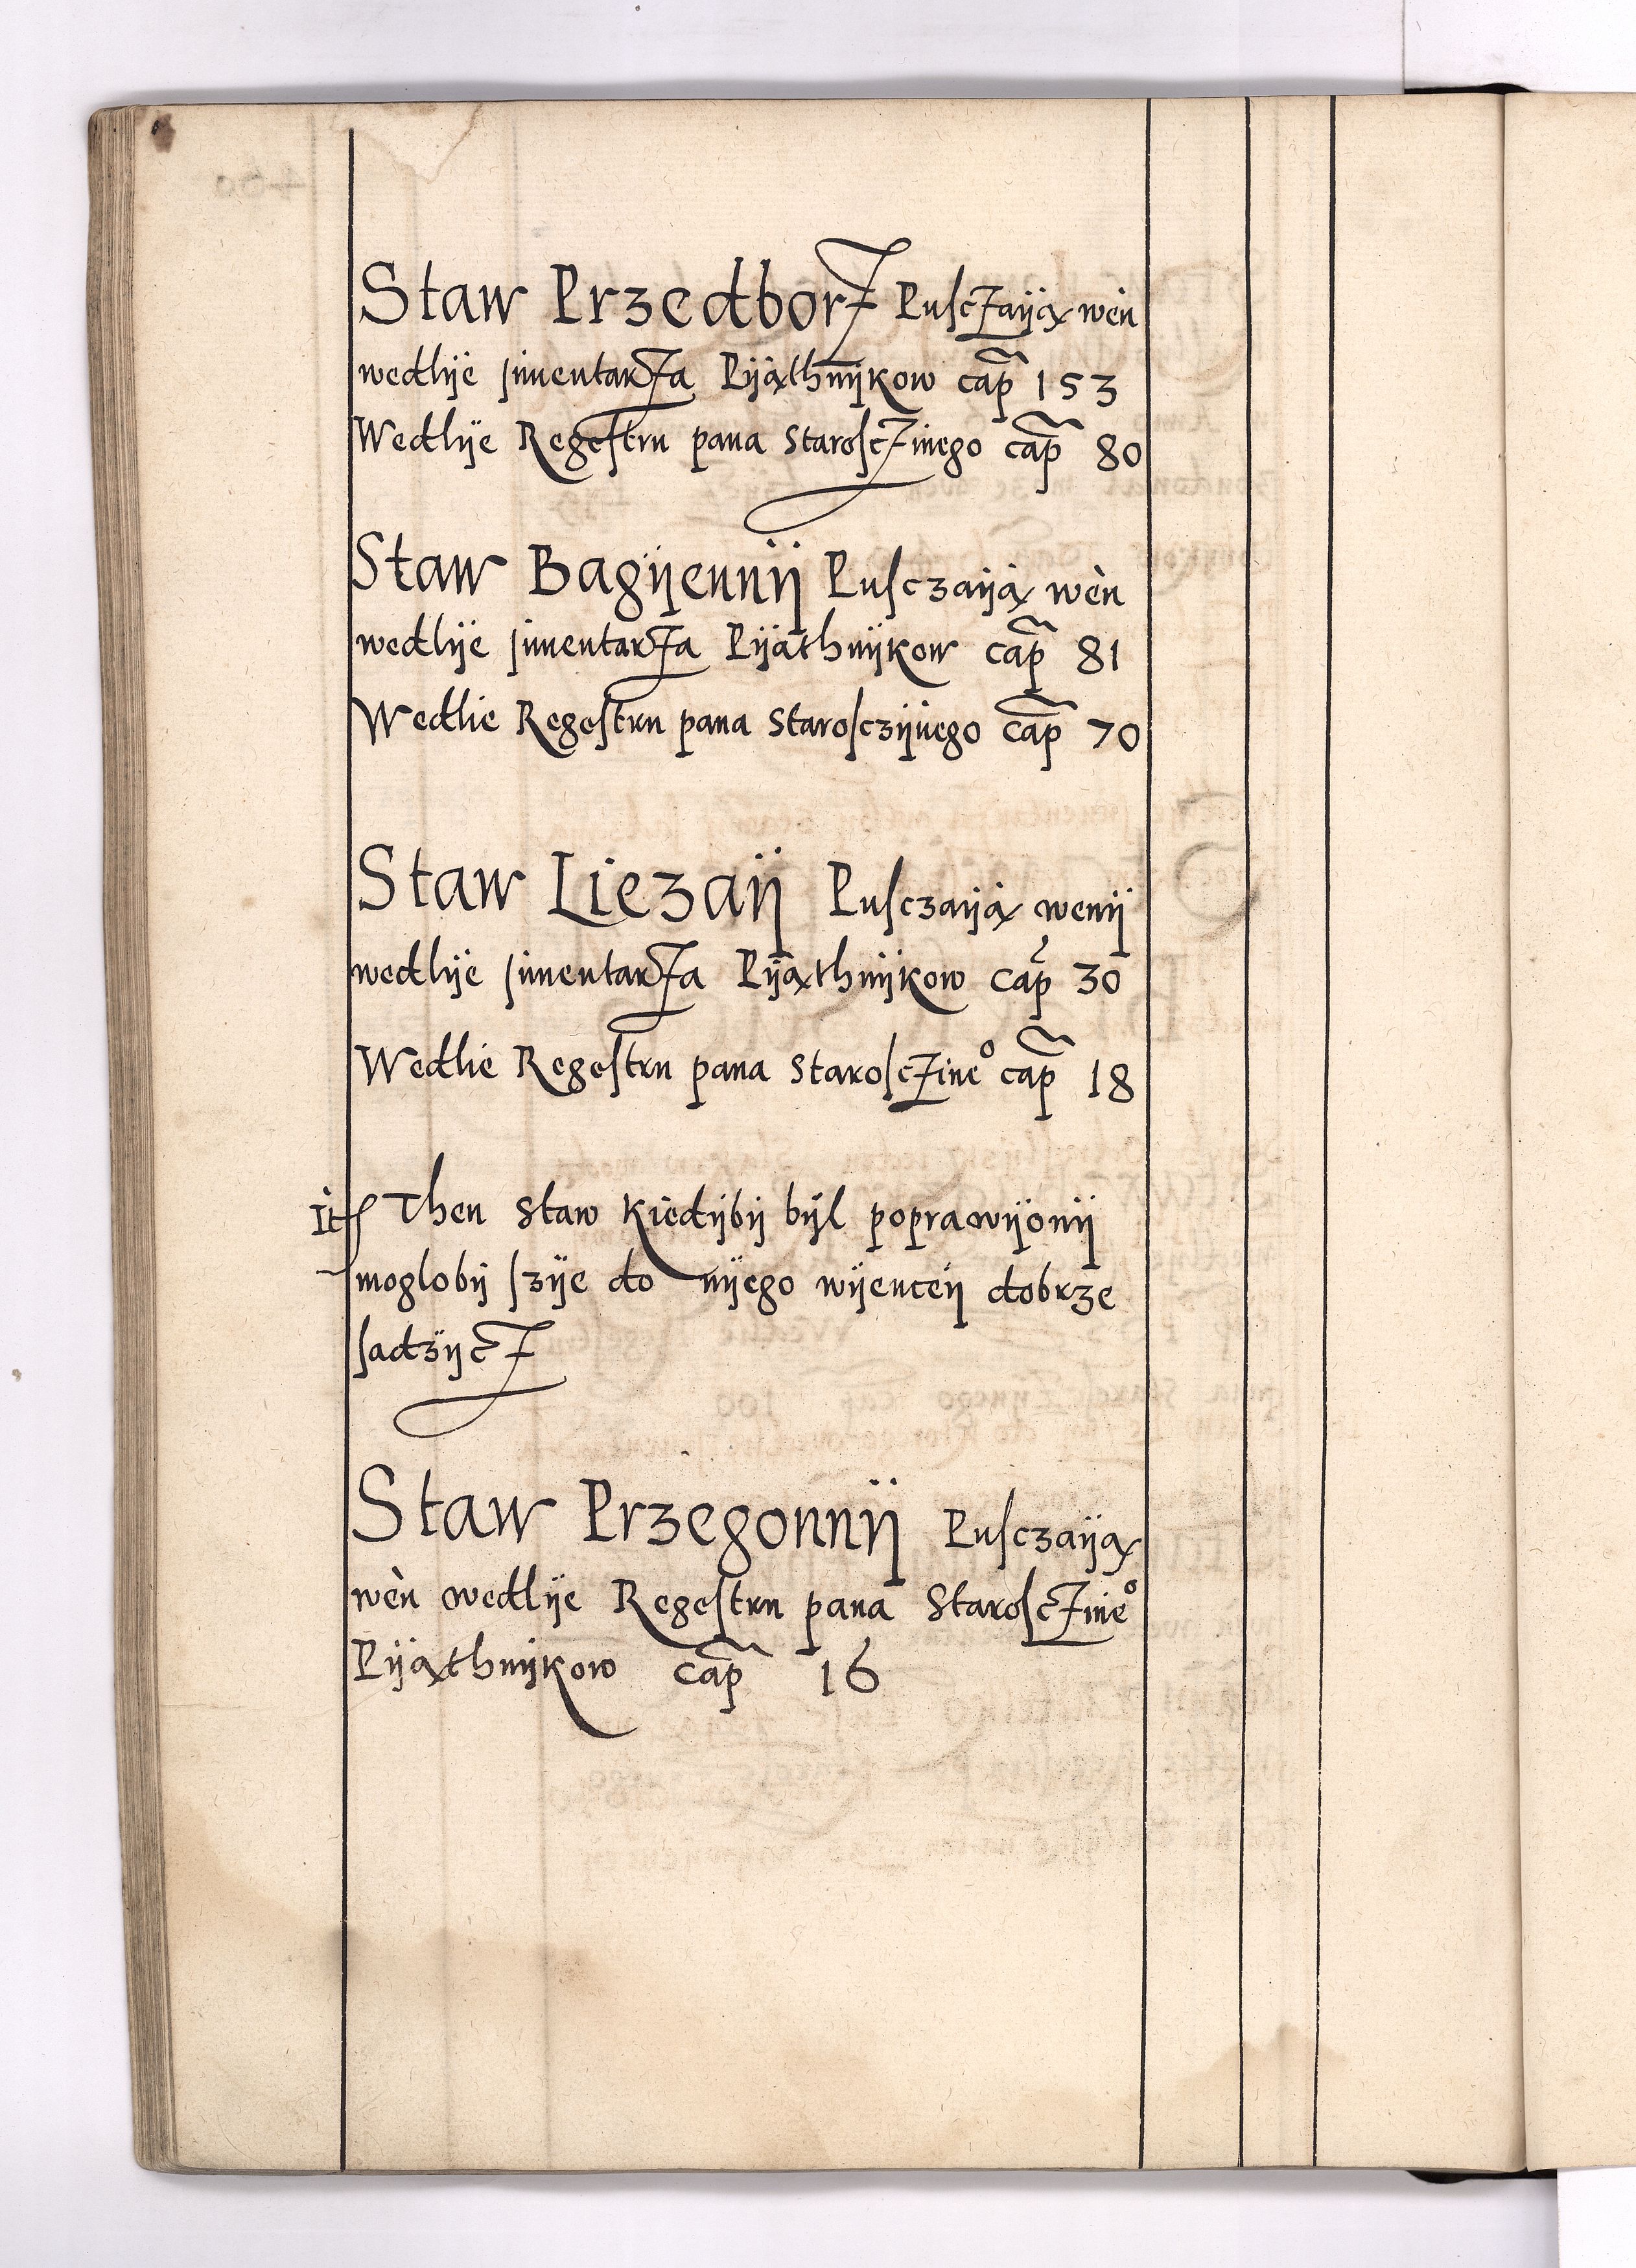 Staw Przedborz Pusczaÿą wèn
wedlÿe inuentarza Pÿąthnÿkow cap̃ 153
Wedlÿe Regestru pana Starosczinego cap̃ 80
Staw Bagÿennÿ Pusczaÿą wèn
wedlÿe inuentarza Pÿąthnÿkow cap̃ 81
Wedlie Regestru pana Starosczÿnego cap̃ 70
Staw Liezaÿ Pusczaÿą wenÿ
wedlÿe inuentarza Pÿąthnÿkow cap̃ 30
Wedlie Regestru pana Starosczine° cap̃ 18
Then Staw kiedÿbÿ bÿl poprawÿonÿ
moglobÿ szÿe do nÿego wÿenceÿ dobrze
sadzÿcz
Staw Przegonnÿ Pusczaÿą
wèn wedlÿe Regestru pana Starosczine°
Pÿąthnÿkow cap̃ 16